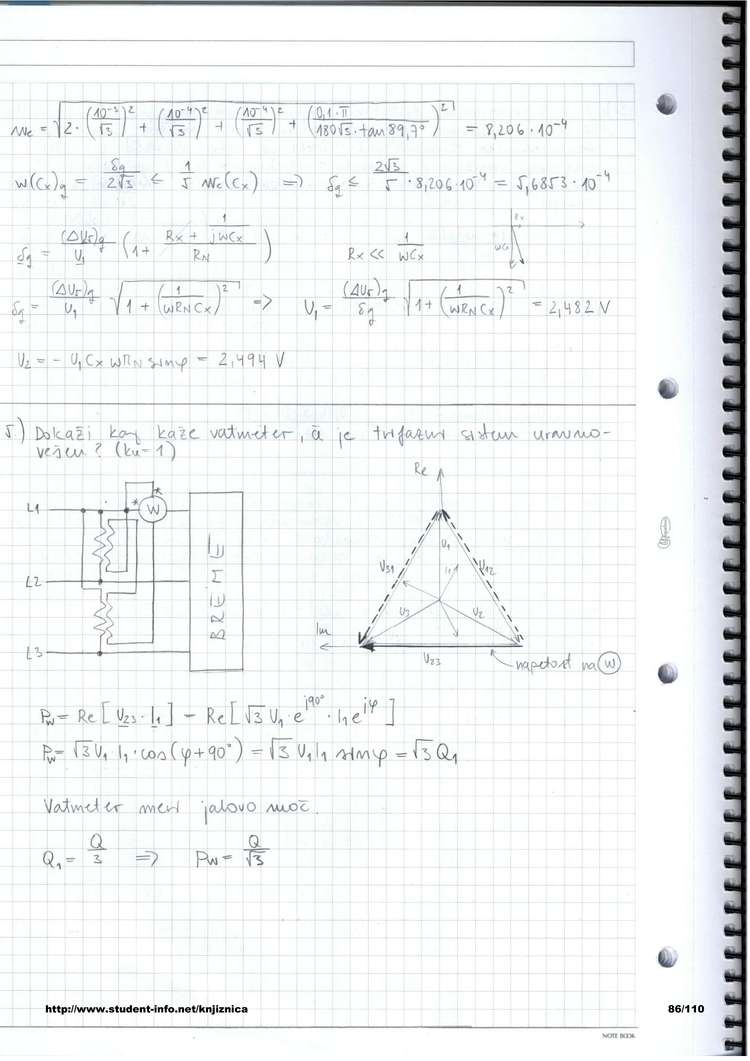 Mc = √(2·(10⁻³/√3)² + (10⁻⁴/√3)² + (10⁻⁴/√3)² + (0,1·π/(180√3·tan 89,7°))²) = 8,206·10⁻⁴
w(Cx)g = δg/(2√3) ≤ 1/5 Mc(Cx) => δg ≤ 2√3/5 · 8,206·10⁻⁴ = 5,6853·10⁻⁴
δg = (ΔU5)g/U1 (1 + (Rx + 1/(jωCx))/RN) Rx << 1/(ωCx)
δg = (ΔU5)g/U1 √(1 + (1/(ωRNCx))²) => U1 = (ΔU5)g/δg √(1 + (1/(ωRNCx))²) = 2,482 V
U2 = - U1 Cx ωRN sinφ = 2,494 V
5) Dokaži kaj kaže vatmeter, če je trifazni sistem uravno-
vešen? (ku=1)
Re
* *
W
L1
U1
I1
U31
U12
L2
BREME
U3
U2
Im
L3
U23
napetost na W
Pw = Re[U23·I1] - Re[√3 U1·e^j90°·I1e^jφ]
Pw = √3 U1 I1·cos(φ+90°) = √3 U1I1 sinφ = √3 Q1
Vatmeter meri jalovo moč.
Q1 = Q/3 => Pw = Q/√3
http://www.student-info.net/knjiznica
86/110
NOTE BOOK